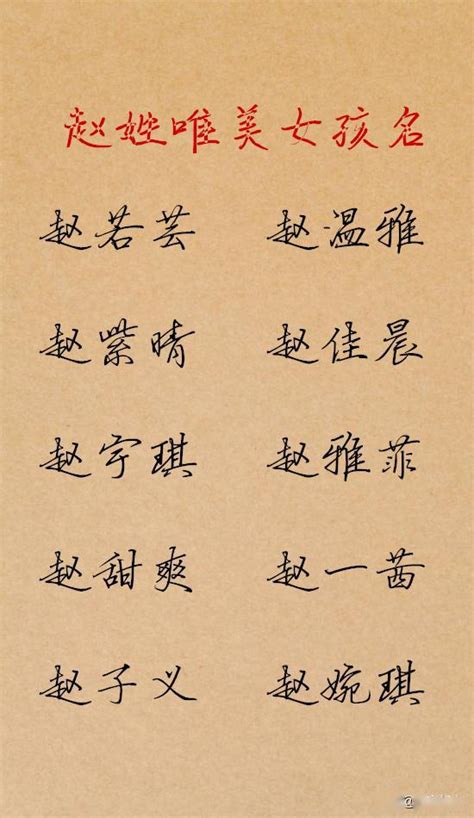 赵姓唯美女孩名
赵若芸 赵温雅
赵紫晴 赵佳晨
赵宇琪 赵雅菲
赵甜爽 赵一茜
赵子义 赵婉琪
@